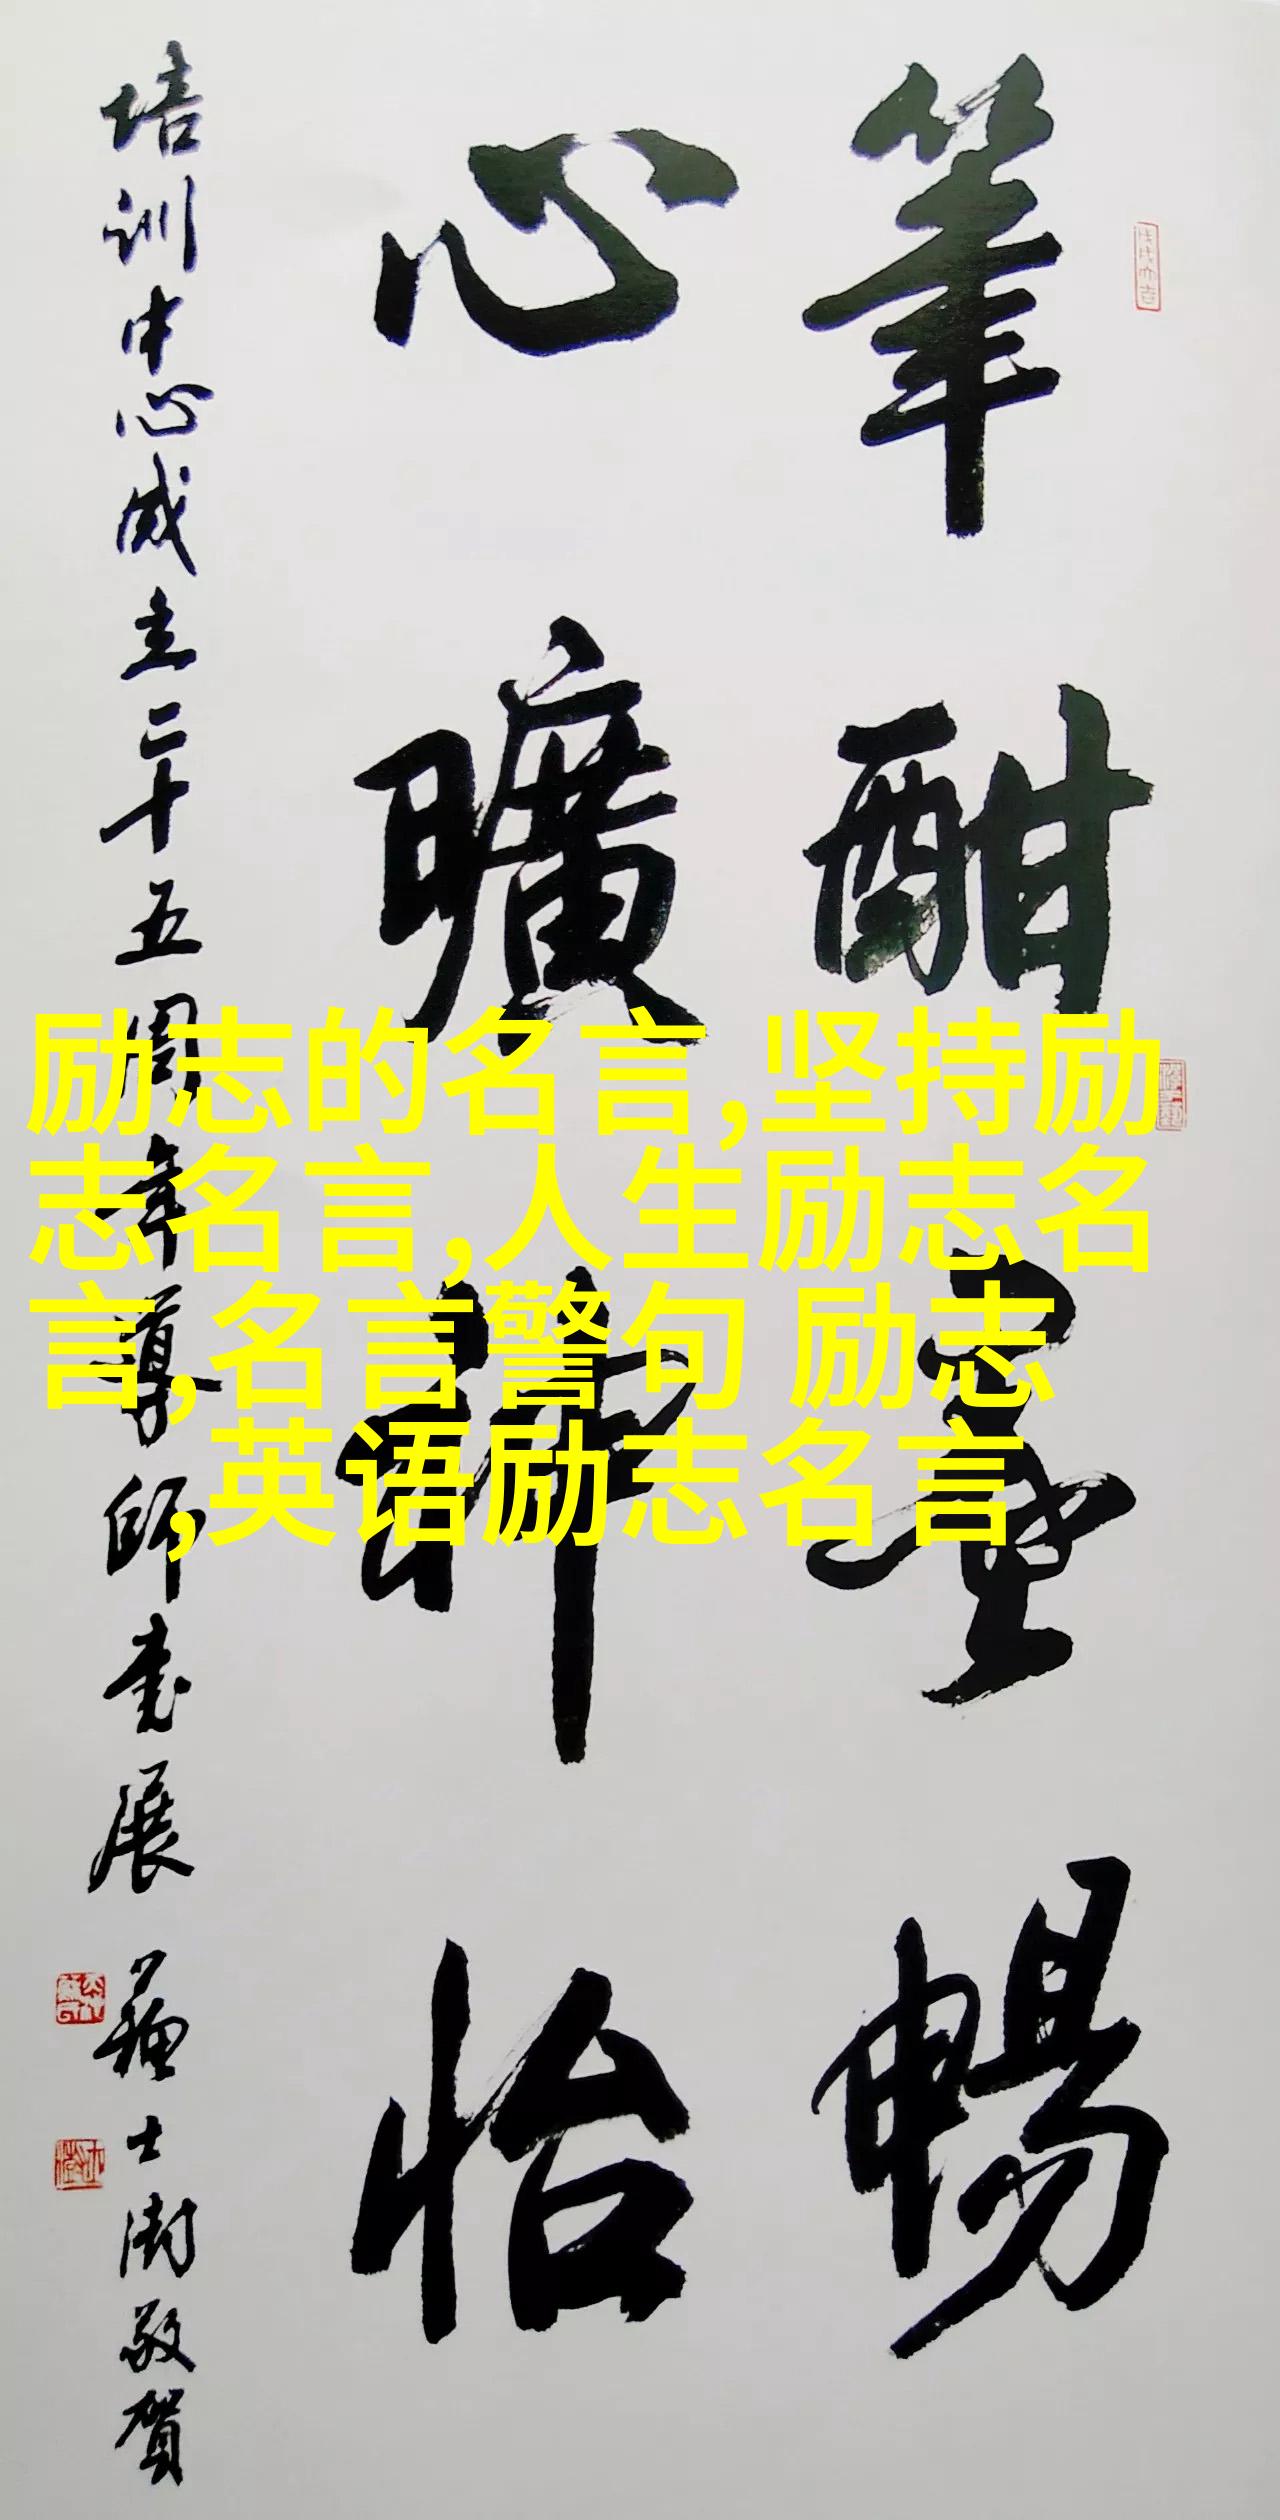 筆酣墨暢
心曠神怡
培训中心成立二十五周年导师书展
苏士澍敬贺
励志的名言,坚持励
志名言,人生励志名
言,名言警句 励志
,英语励志名言